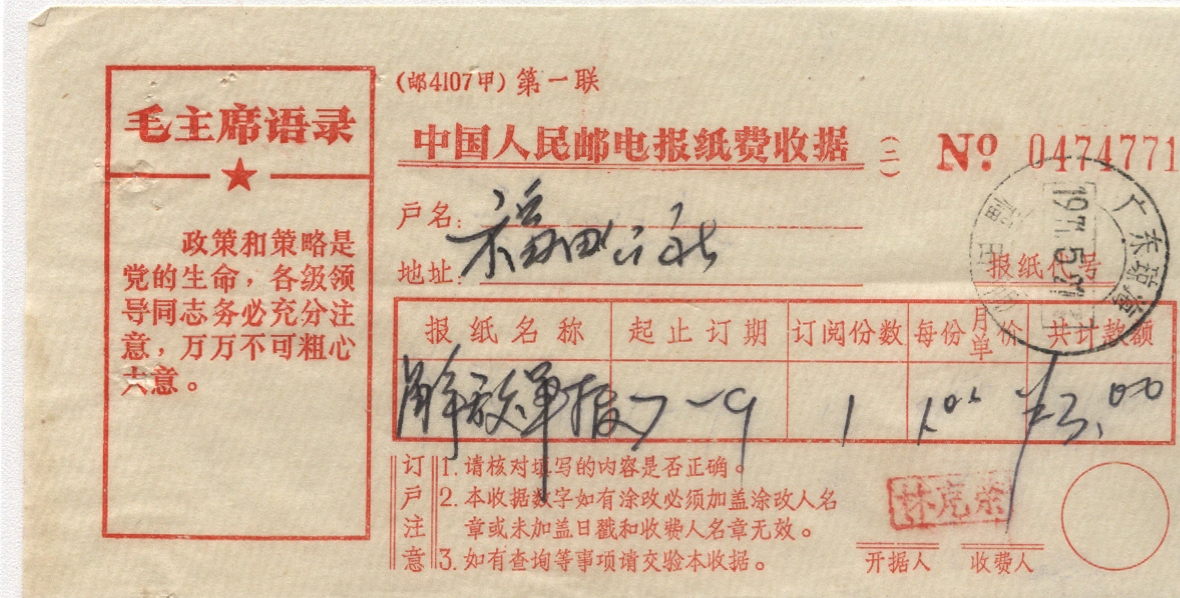 毛主席语录
政策和策略是
党的生命，各级领
导同志务必充分注
意，万万不可粗心
大意。
(邮4107甲) 第一联
中国人民邮电报纸费收据 (二) No 0474771
户名:
福田公社
地址:
报纸代号
报纸名称 起止订期 订阅份数 每份月单价 共计款额
解放军报 7-9 1 ¥3.00
订户注意
1. 请核对填写的内容是否正确。
2. 本收据数字如有涂改必须加盖涂改人名
章或未加盖日戳和收费人名章无效。
3. 如有查询等事项请交验本收据。
开据人 收费人
林克荣
广东